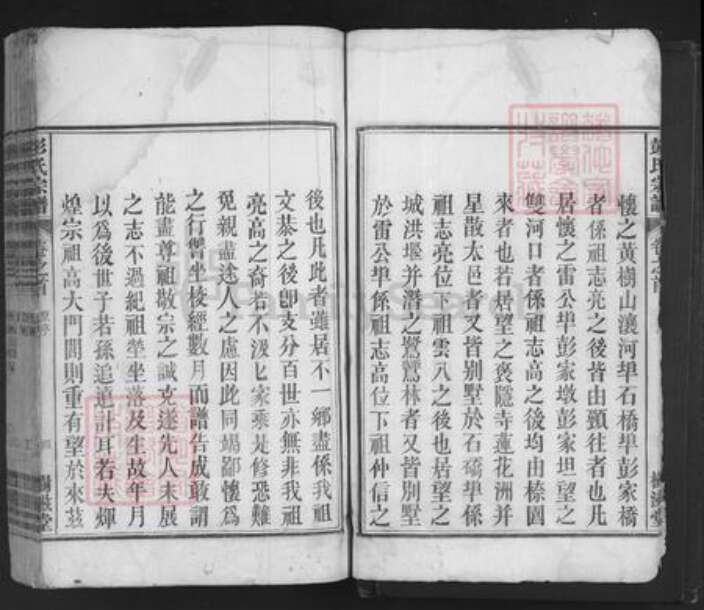 彭氏宗譜 卷之首 樹滋堂
懷之黃樹山瀼河垾石橋垾彭家橋
者係祖志亮之後皆由顥往者也凡
居懷之雷公垾彭家墩彭家坦望之
雙河口者係祖志高之後均由榛圓
來者也若居望之褒隱寺蓮花洲并
星散太邑者又皆別墅於石礄垾係
祖志亮位下祖雲八之後也居望之
城洪堰并潛之鷺鷥林者又皆別墅
於雷公垾係祖志高位下祖仲信之
後也凡此者雖居不一鄉盡係我祖
文恭之後即支分百世亦無非我祖
亮高之裔若不汲匕家乘是修恐難
免親盡途人之慮因此同竭鄙懷為
之行嚮坐棱經數月而譜告成敢謂
能盡尊祖敬宗之誠克遂先人未展
之志不過紀祖塋坐落及生故年月
以為後世子若孫追遠計耳若夫煇
煌宗祖高大門閭則重有望於來茲
彭氏宗譜 卷之首 樹滋堂